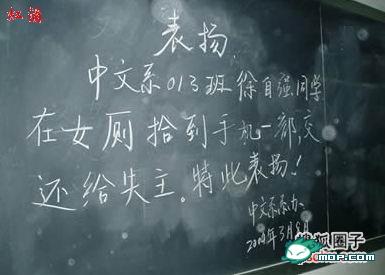 红描
表扬
中文系013班徐自强同学
在女厕拾到手机一部,交
还给失主。特此表扬!
中文系系办
3月8日
搜狐圈子
MOP.com